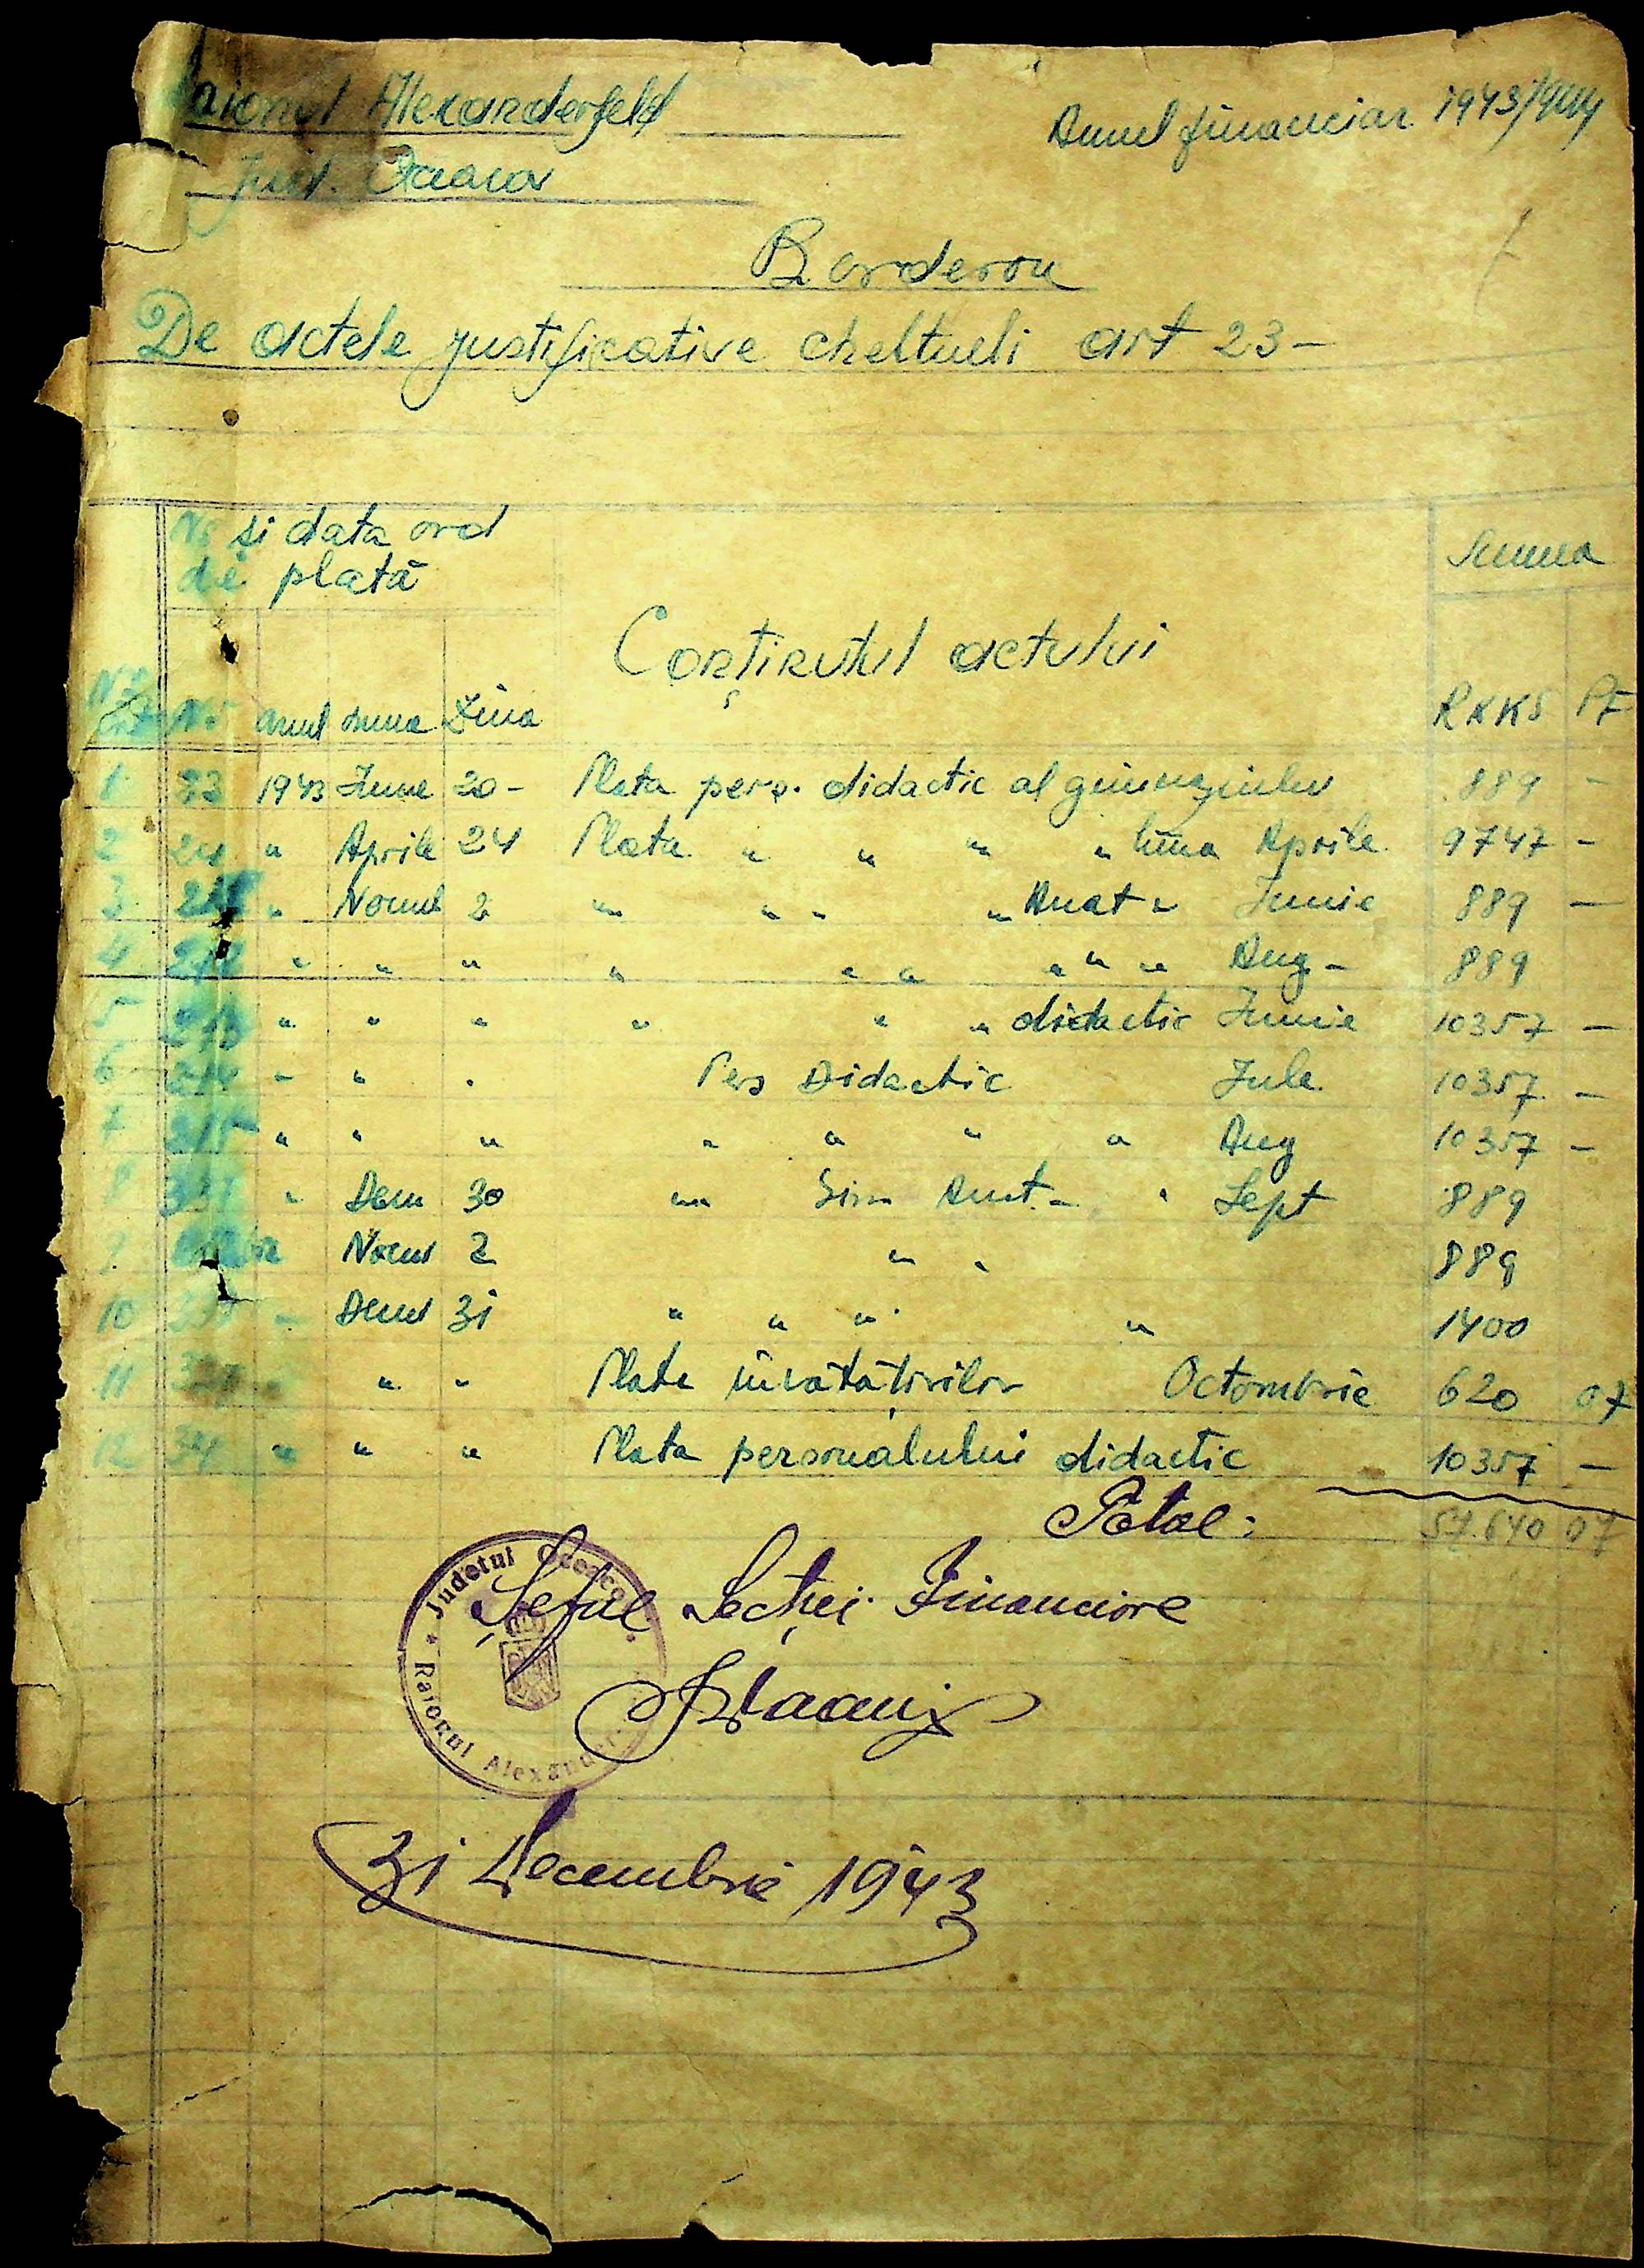 Raionul Alexanderfeld
Anul financiar 1943/944
Jud. Oceacov
Borderou
De actele justificative cheltueli art 23 –
Nr și data ord
de plată
Suma
Conținutul actului
Nr Nr anul luna Ziua RKKS Pf
1 23 1943 June 20 – Plata pers. didactic al gimnaziului 889 –
2 24 " Aprile 24 Plata " " " " luna Aprile 9747 –
3 " Noemb 2 " " " " Junie 889 —
4 212 " " " " " " " " " Aug – 889
5 213 " " " " " " didactic Junie 10357 –
6 214 " " " Pers Didactic Jule 10357 –
7 215 " " " " " " " Aug 10357 –
8 " Dem 30 " Gim " Sept 889
9 Noem 2 " " 889
10 " Dem 31 " " " " 1400
11 " " Plata învățătorilor Octombrie 620 07
12 34 " " " Plata personalului didactic 10357 —
Total: 57.640 07
Șeful Secției Financiare
Județul Oceacov
Raionul Alexander
31 Decembrie 1943